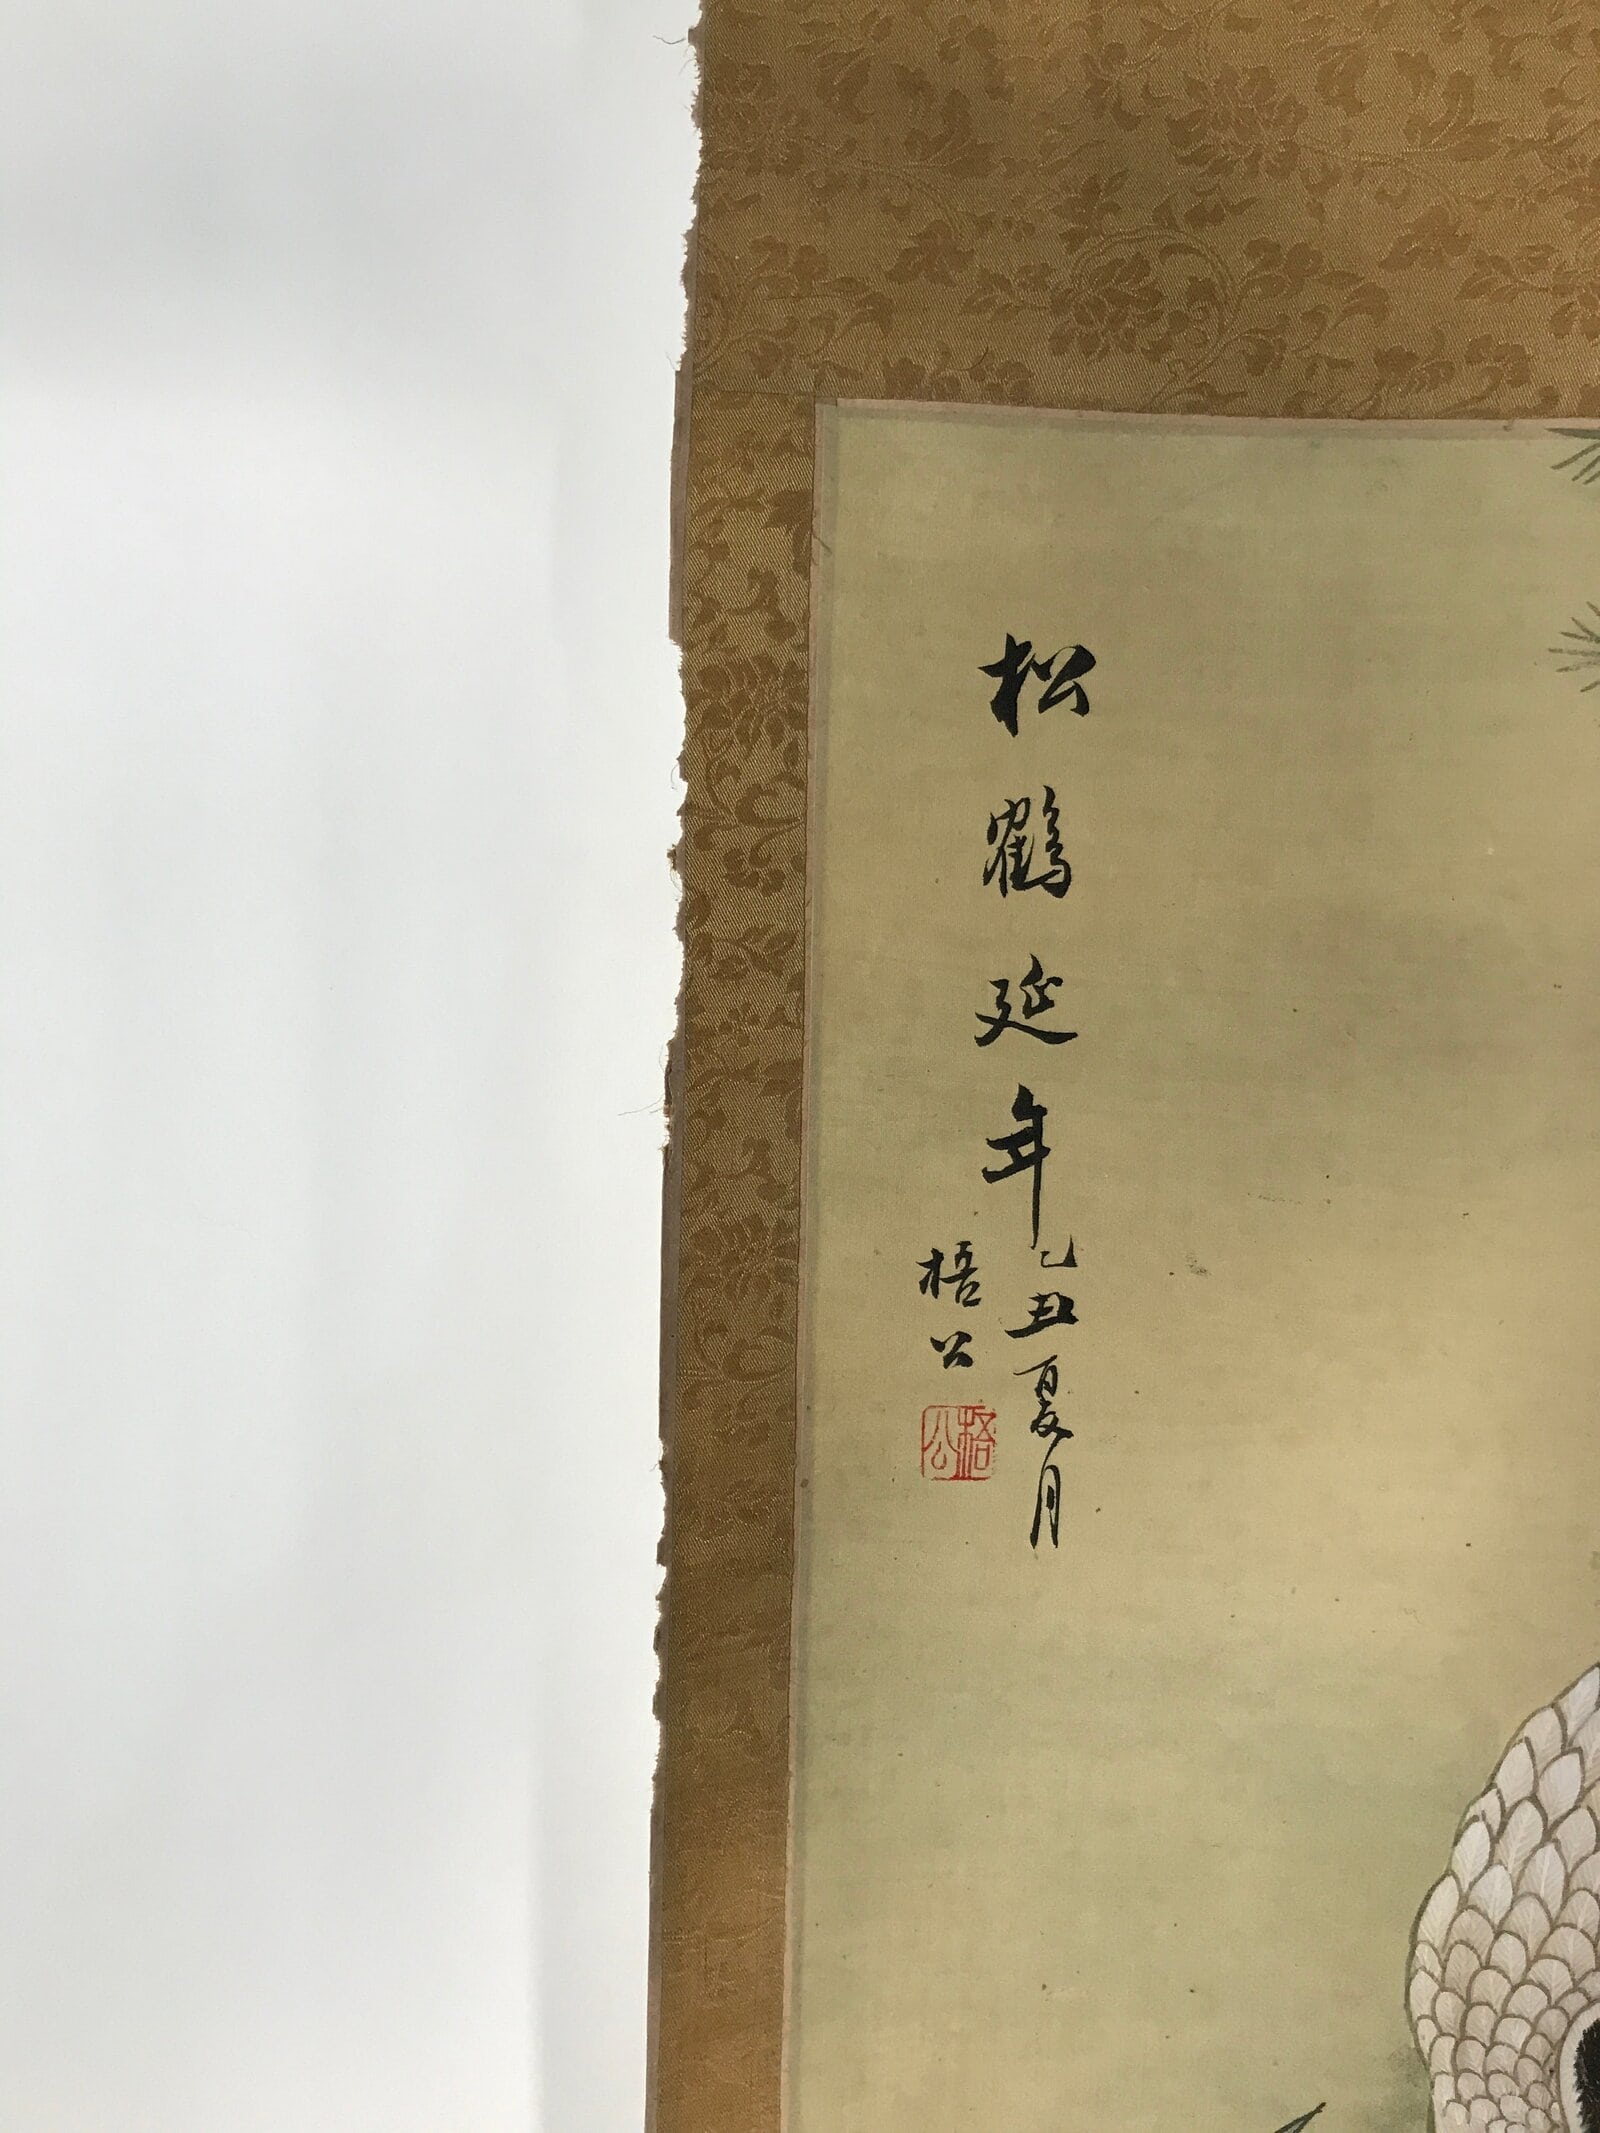 松鶴延年
乙丑夏月
梧公
梧公